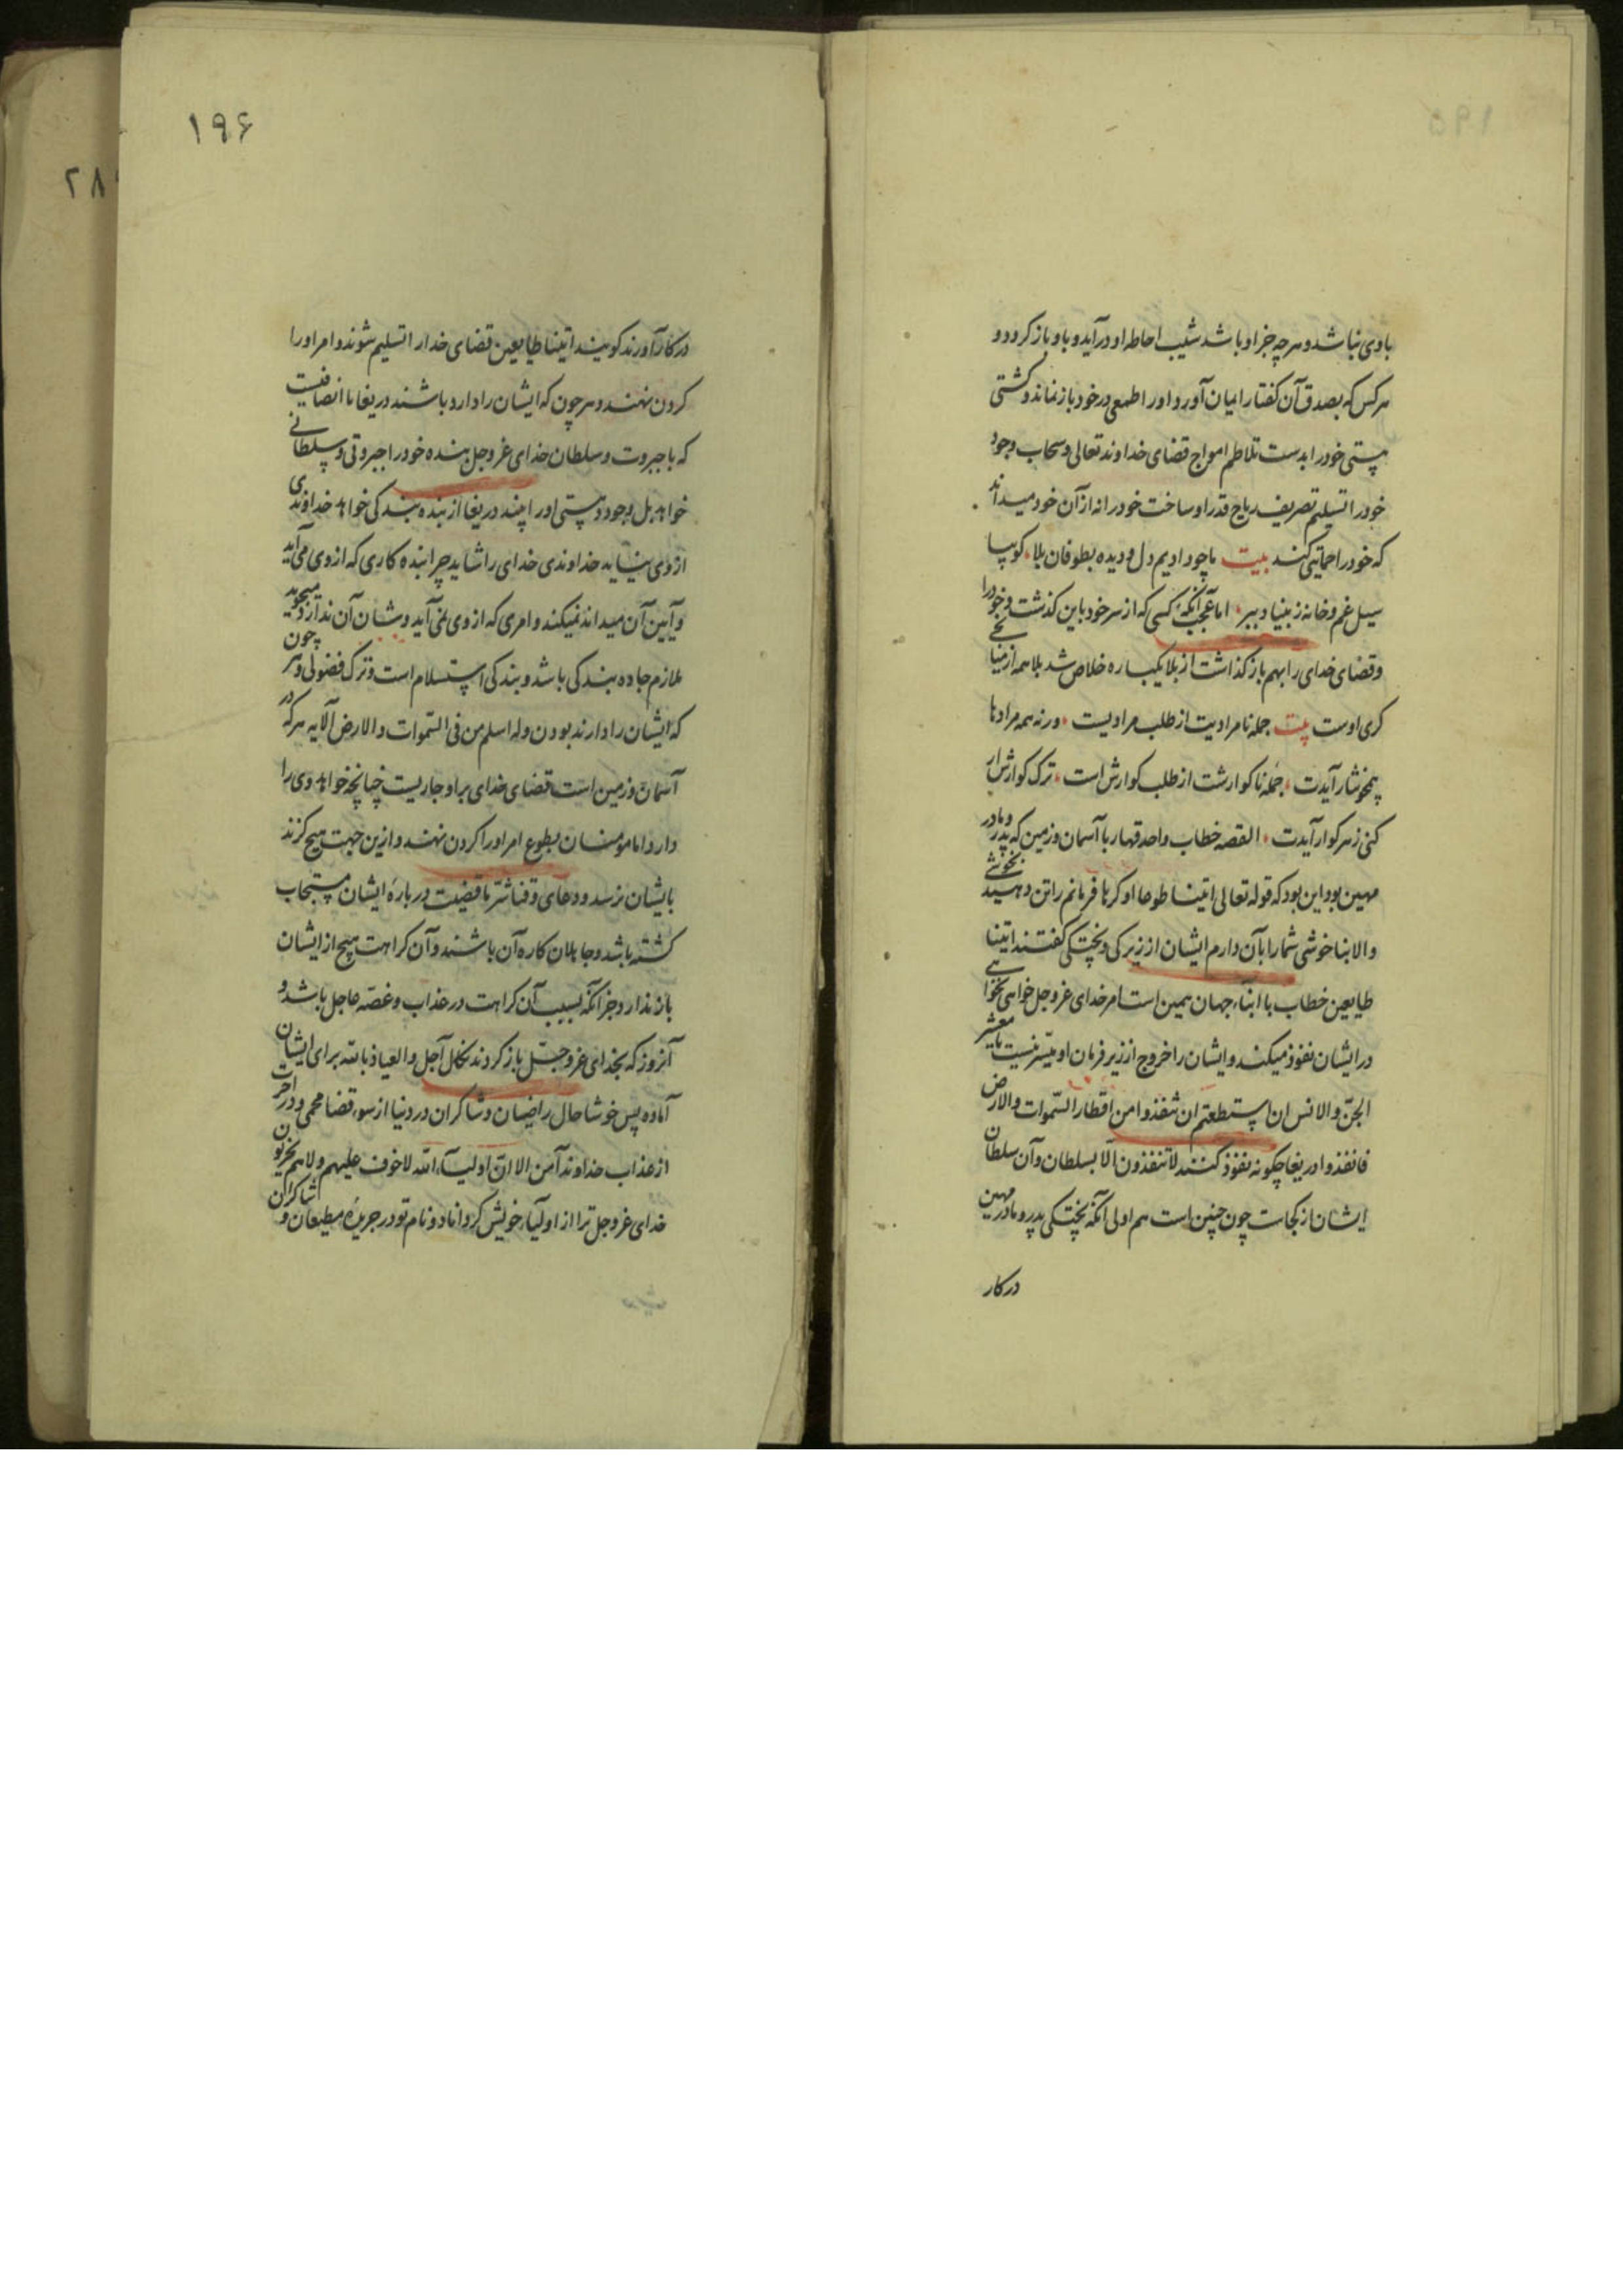 ۱۹۵
باوی نباشد و هرچه جز او باشد شیب احاطه او درآید و باو باز کردد و
هرکس که بصدق آن کفتار ایمان آورد و او را طمعی در خود باز نماند و کشتی
هستی خود را بدست تلاطم امواج قضای خداوند تعالی و سحاب وجود
خود را تسلیم تصریف ریاح قدر او ساخت خود را نه از آن خود میداند
که خود را حمایتی کند بیت ما چو دادیم دل و دیده بطوفان بلا، کو بیا
سیل غم و خانه ز بنیاد ببر، اما عجب آنکه کسی که از سر خود باین کذشت و خود را
و قضای خدای را بهم باز کذاشت از بلا یکباره خلاص شد بلا همه از میانجی
کری اوست بیت جمله نامرادیت از طلب مرادیست، ورنه همه مرادها
همچو نثار آیدت، جمله ناکوارشت از طلب کوارش است، ترک کوارش ار
کنی زهر کوار آیدت، القصه خطاب واحد قهار با آسمان و زمین که پدر و مادر
مهین بود این بود که قوله تعالی ائتیا طوعا او کرها فرمانم را تن دهید بخوشی
والا بناخوشی شما را بآن دارم ایشان از زیرکی و پختکی کفتند اتینا
طایعین خطاب با ابناء جهان همین است امر خدای عز و جل خواهی نخواهی
در ایشان نفوذ میکند و ایشان را خروج از زیر فرمان او میسّر نیست یا معشر
الجنّ والانس ان استطعتم ان تنفذوا من اقطار السّموات والارض
فانفذوا دریغا چکونه نفوذ کنند لا تنفذون الّا بسلطان و آن سلطان
ایشان از کجاست چون چنین است هم اولی آنکه پختکی پدر و مادر مهین
در کار
۱۹۶
در کار آورند کویند اتینا طایعین قضای خدا را تسلیم شوند و امر او را
کردن نهند و هر چون که ایشان را دارد باشند دریغا نا انصافیست
که با جبروت و سلطان خدای عز و جل بنده خود را جبروتی و سلطانی
خواهد بل وجود و هستی او را پسند دریغا از بنده بندکی خواهد خداوندی
از وی نیاید خداوندی خدای را شاید چرا بنده کاری که از وی می آید
و آیین آن میداند نمیکند و امری که از وی نمی آید و شان آن ندارد میجوید
ملازم جاده بندکی باشد و بندکی استسلام است و ترک فضولی و هر چون
که ایشان را دارند بودن وله اسلم من فی السّموات والارض الآیه هرکه در
آسمان و زمین است قضای خدای بر او جاریست چنانچه خواهد وی را
دارد اما مؤمنان بطوع امر او را کردن نهند و ازین جهت هیچ کزند
بایشان نرسد و دعای وقنا شر ما قضیت در باره ایشان مستجاب
کشته باشد و جاهلان کاره آن باشند و آن کراهت هیچ از ایشان
باز ندارد جز آنکه بسبب آن کراهت در عذاب و غصّه عاجل باشند و
آنروز که بخدای عز و جلّ باز کردند نکال آجل والعیاذ بالله برای ایشان
آماده پس خوشا حال راضیان و شاکران در دنیا از سوء قضا محمی و در آخرت
از عذاب خداوند آمن الا انّ اولیاء الله لا خوف علیهم ولا هم یحزنون
خدای عز و جل ترا از اولیاء خویش کرداناد و نام تو در جریدهٔ مطیعان و شاکران
۲۸